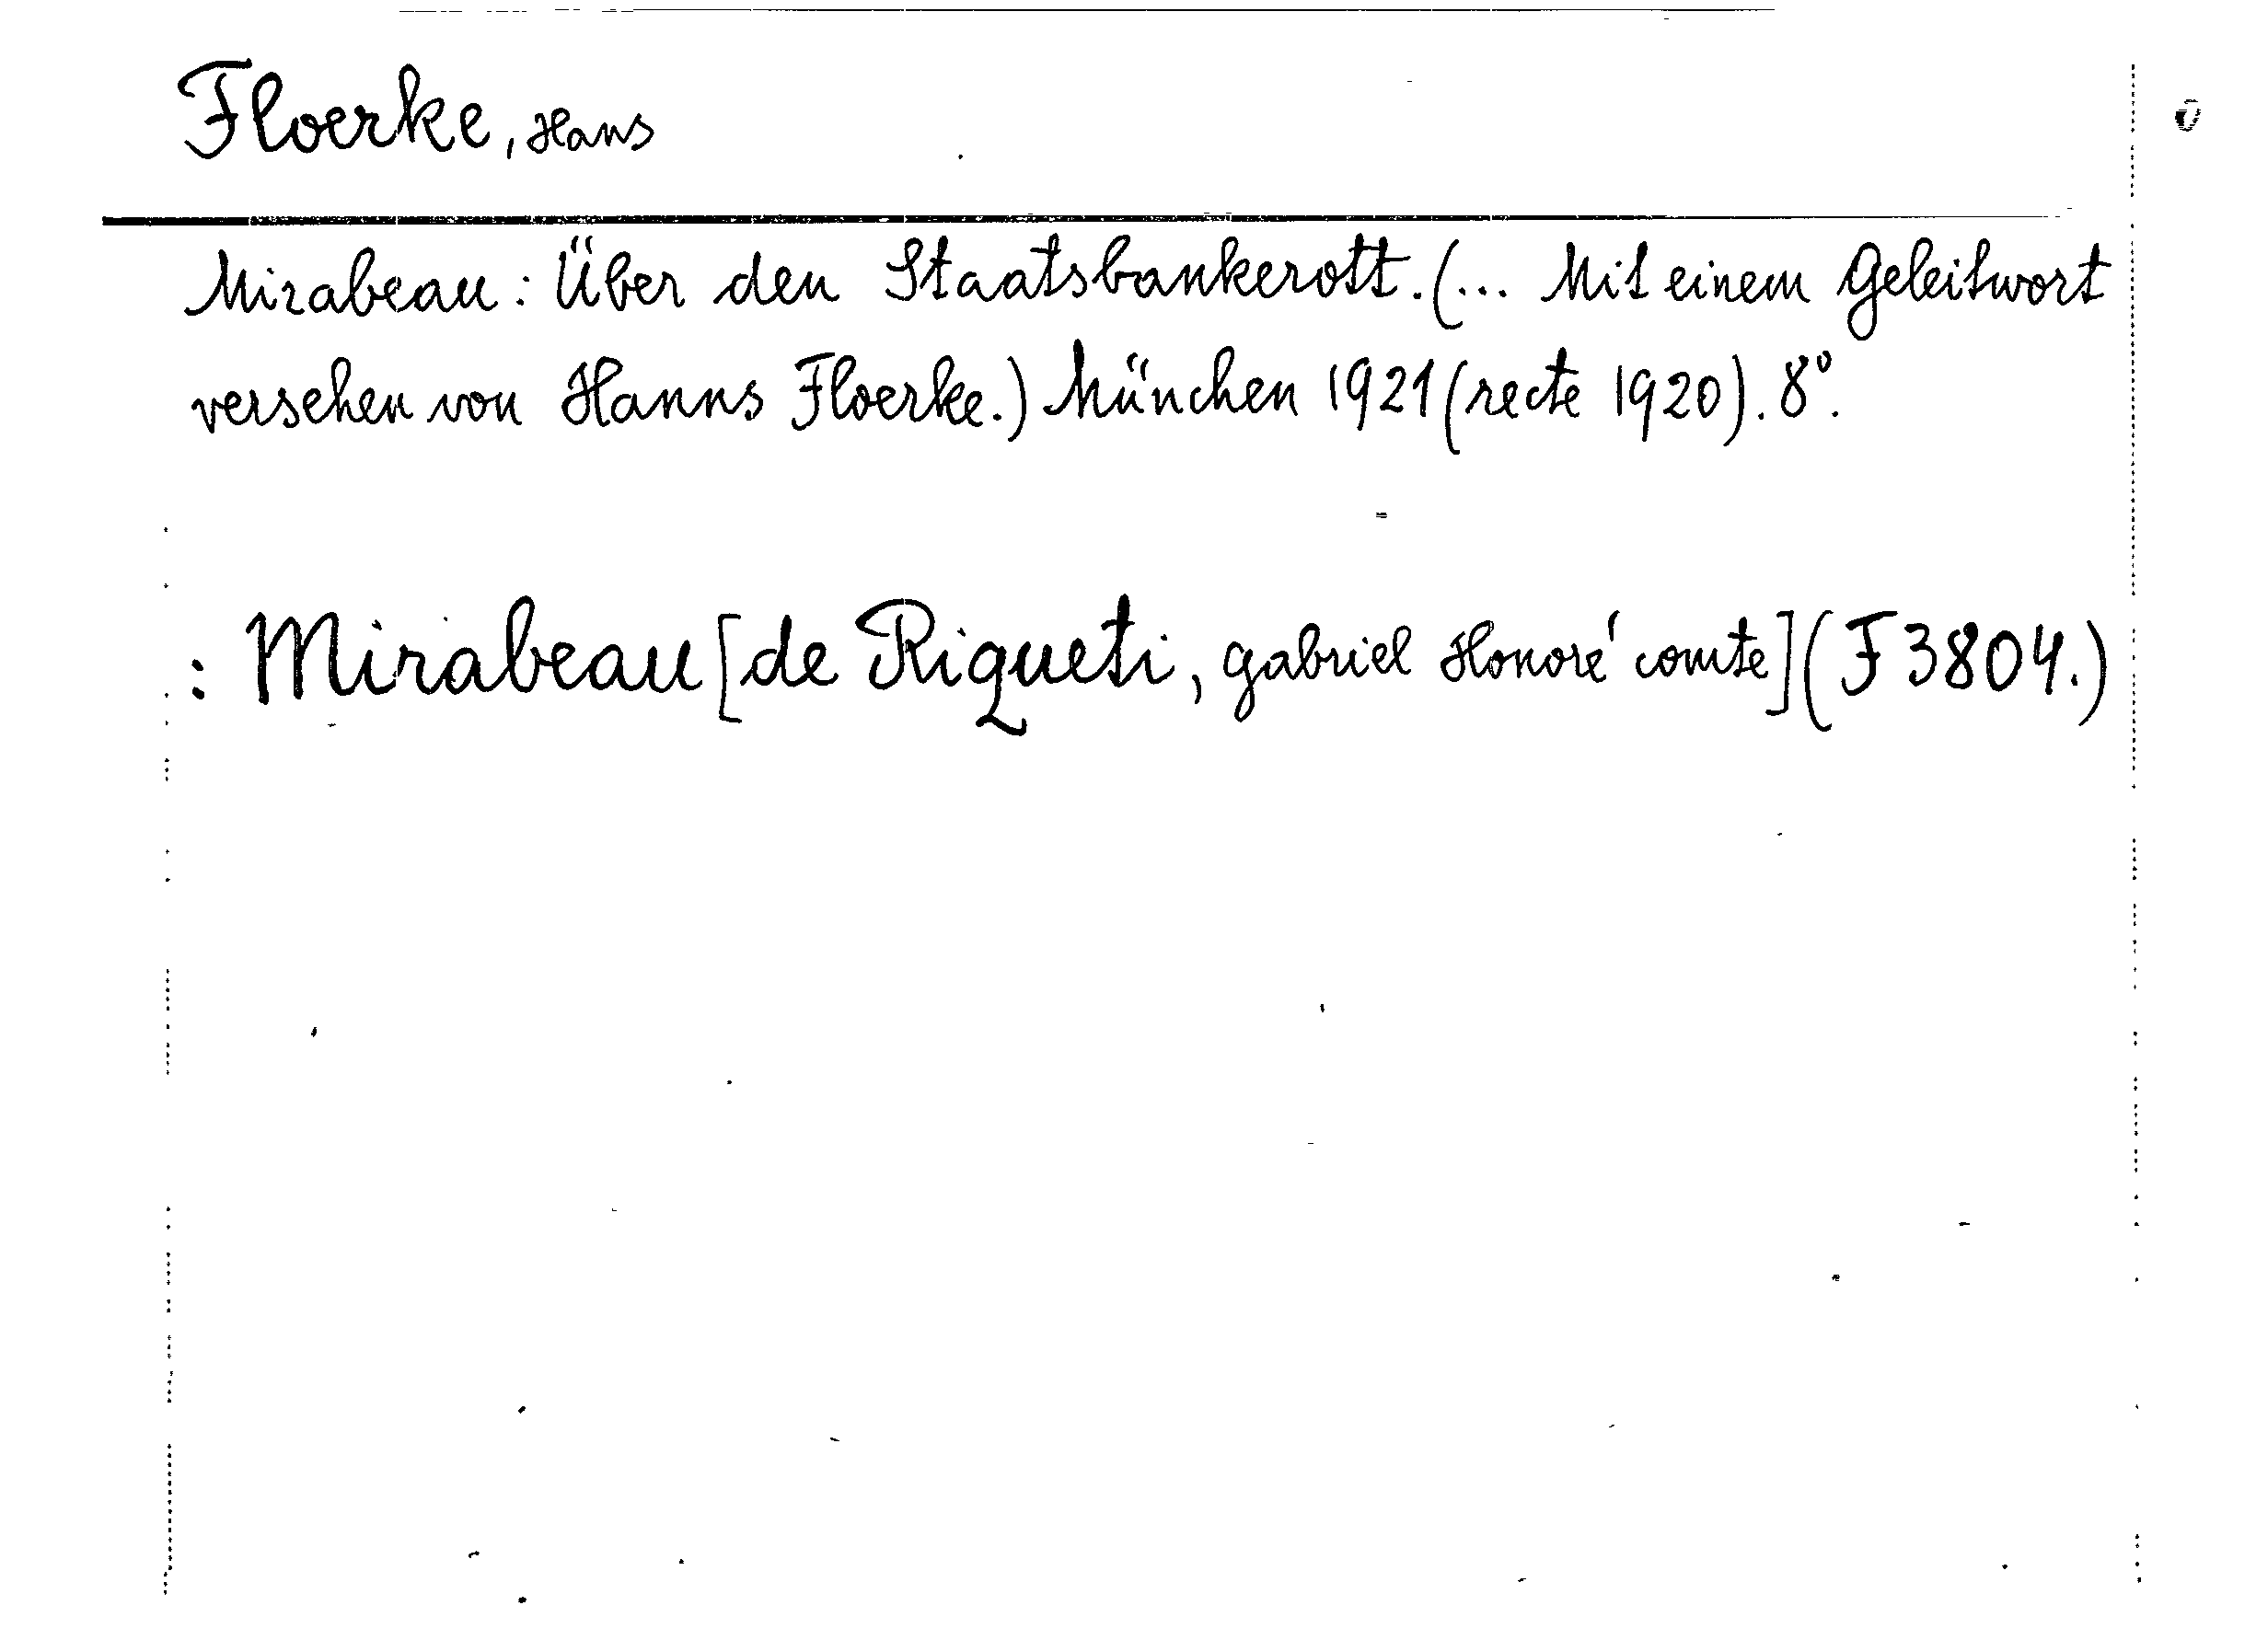 Floerke, Hans
Mirabeau: Über den Staatsbankerott. (... Mit einem Geleitwort
versehen von Hanns Floerke.) München 1921 (recte 1920). 8°.
: Mirabeau [de Riqueti, Gabriel Honoré comte] (F 3804.)